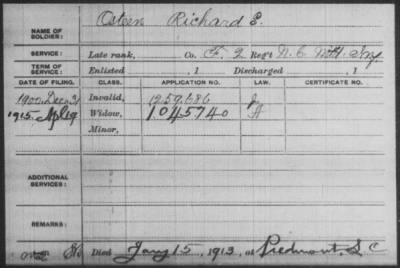 NAME OF SOLDIER: Osteen Richard E.
SERVICE: Late rank, Co. F, 2 Reg't N. C. Mtd. Inf
TERM OF SERVICE: Enlisted , 1 Discharged , 1
DATE OF FILING. CLASS. APPLICATION NO. LAW. CERTIFICATE NO.
1900 Dec 31 Invalid, 1259,686
1915. Widow, 1045740
Minor,
ADDITIONAL SERVICES:
REMARKS:
Died Jany 15, 1913, at Piedmont, S C